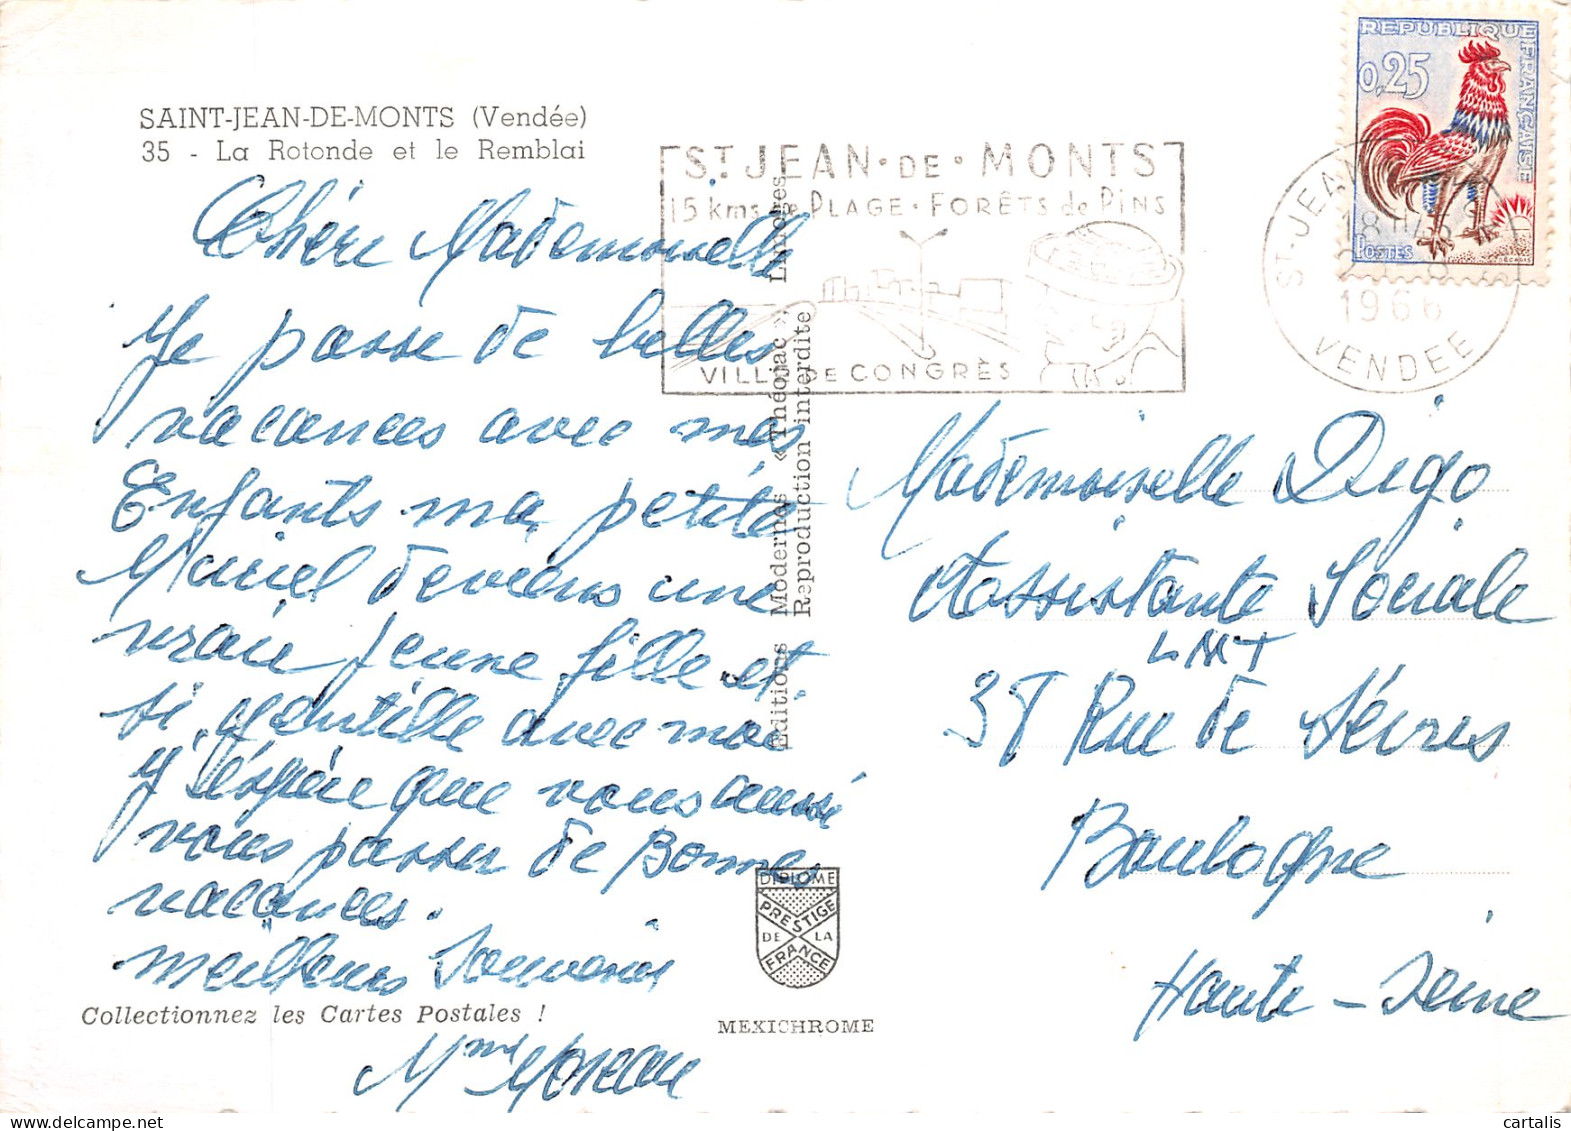 SAINT-JEAN-DE-MONTS (Vendée)
35 - La Rotonde et le Remblai
Chère Mademoiselle
Je passe de belles
vacances avec mes
Enfants ma petite
Muriel deviens une
vraie jeune fille et
si gentille avec moi
J'espère que vous aussi
vous passer de Bonnes
vacances.
meilleurs Souvenirs
Mme Moreau
Collectionnez les Cartes Postales !
Editions Modernes « Théojac » Limoges
Reproduction interdite
DIPLOME
PRESTIGE
DE LA
FRANCE
MEXICHROME
ST JEAN • DE • MONTS
15 kms de PLAGE • FORÊTS de PINS
VILLE DE CONGRÈS
ST-JEAN
18 H
1966
VENDEE
REPUBLIQUE FRANÇAISE
0,25
POSTES
DECARIS
Mademoiselle Digo
Assistante Sociale
LMT
38 Rue de Sèvres
Boulogne
Haute-Seine
cartalis